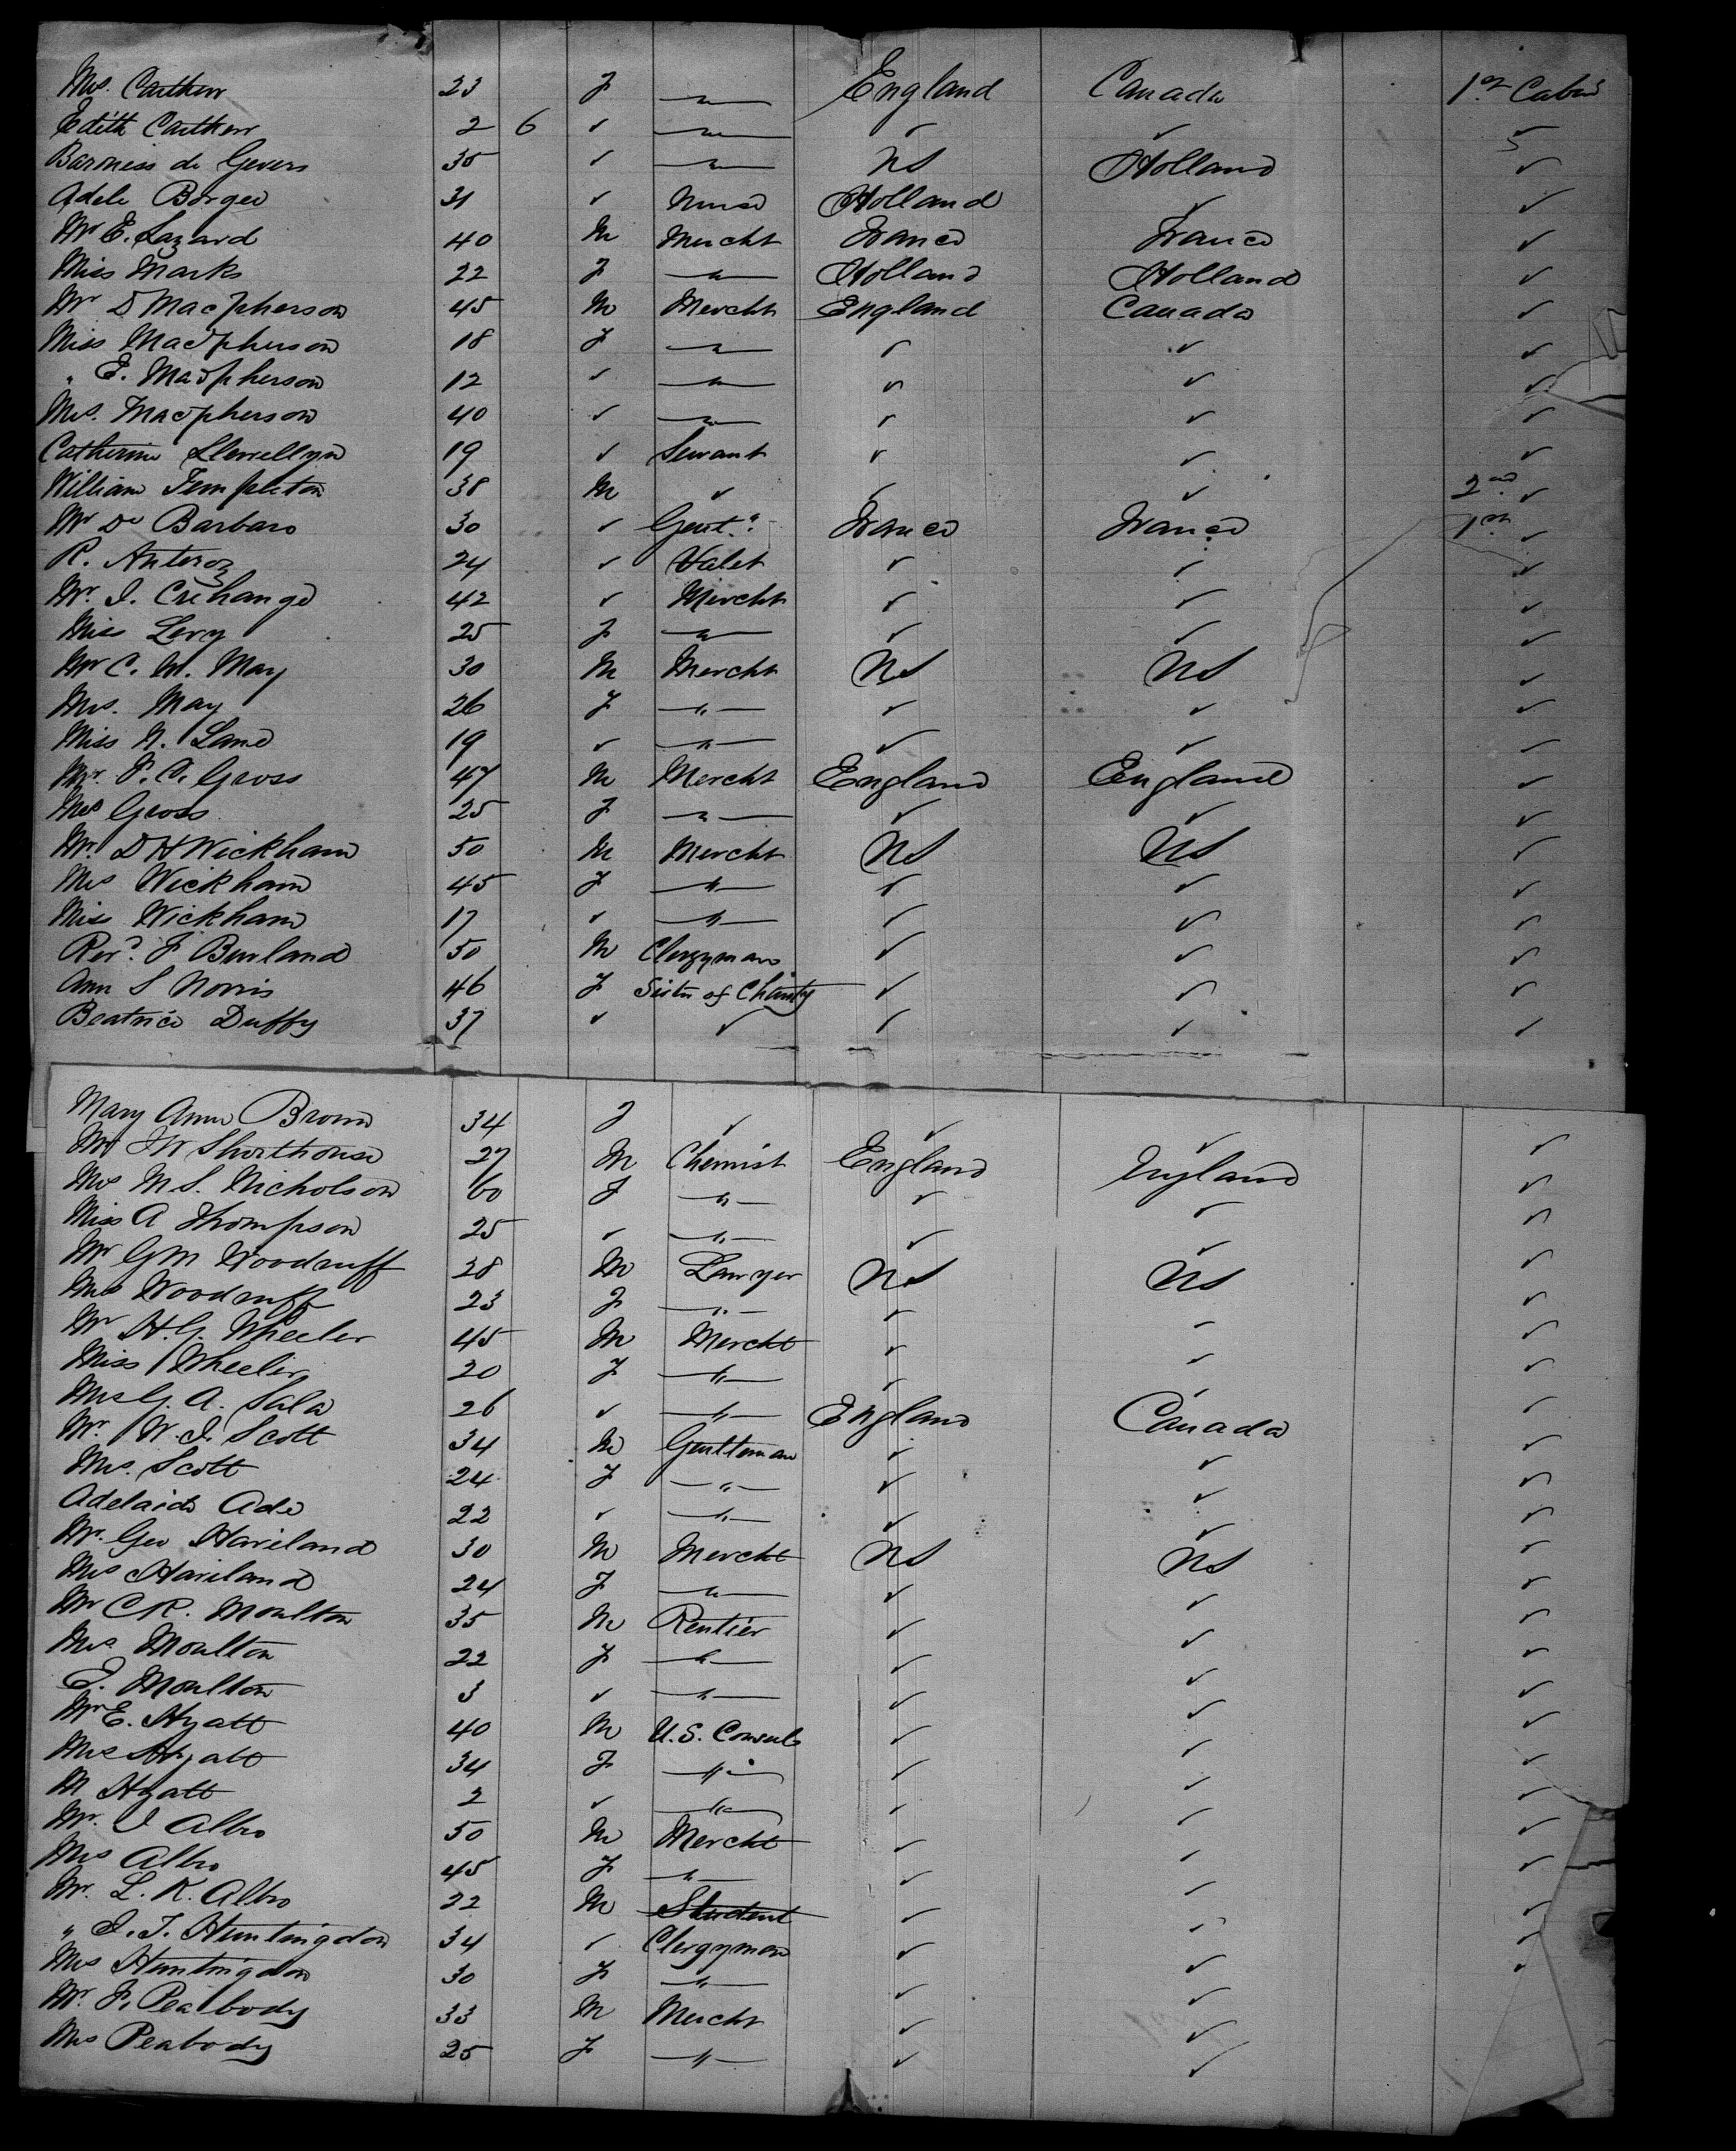 Mrs. Carthew 23 F —"— England Canada 1st Cabin
Edith Carthew 2 6 ✓ —"— ✓ ✓ ✓
Baroness de Gevers 35 ✓ —"— US Holland ✓
Adele Borger 31 ✓ Nurse Holland ✓ ✓
Mr E. Lazard 40 M Mercht France France ✓
Miss Marks 22 F —"— Holland Holland ✓
Mr D Macpherson 45 M Mercht England Canada ✓
Miss Macpherson 18 F —"— ✓ ✓ ✓
" E. Macpherson 12 ✓ —"— ✓ ✓ ✓
Mrs. Macpherson 40 ✓ —"— ✓ ✓ ✓
Catherine Llewellyn 19 ✓ Servant ✓ ✓ ✓
William Templeton 38 M ✓ ✓ ✓ 2nd ✓
Mr De Barbaro 30 ✓ Gent. France France 1st ✓
R. Anteroz 24 ✓ Valet ✓ ✓ ✓
Mr. I. Crehange 42 ✓ Mercht ✓ ✓ ✓
Miss Levy 25 F —"— ✓ ✓ ✓
Mr C. W. May 30 M Mercht US US ✓
Mrs. May 26 F —"— ✓ ✓ ✓
Miss N. Lane 19 ✓ —"— ✓ ✓ ✓
Mr. F. A. Gross 47 M Mercht England England ✓
Mrs Gross 25 F —"— ✓ ✓ ✓
Mr. D H Wickham 50 M Mercht US US ✓
Mrs Wickham 45 F —"— ✓ ✓ ✓
Miss Wickham 17 ✓ —"— ✓ ✓ ✓
Revd. F Burland 50 M Clergyman ✓ ✓ ✓
Ann S Norris 46 F Sister of Charity ✓ ✓ ✓
Beatrice Duffy 37 ✓ ✓ ✓ ✓ ✓
Mary Anne Brown 34 F ✓ ✓ ✓ ✓
Mr J W Shorthouse 27 M Chemist England England ✓
Mrs M S. Nicholson 60 F —"— ✓ ✓ ✓
Miss A Thompson 25 ✓ —"— ✓ ✓ ✓
Mr G M Woodruff 28 M Lawyer US US ✓
Mrs Woodruff 23 F —"— ✓ ✓ ✓
Mr H. G. Wheeler 45 M Mercht ✓ ✓ ✓
Miss Wheeler 20 F —"— ✓ ✓ ✓
Mrs G. A. Sala 26 ✓ —"— England Canada ✓
Mr. W. J. Scott 34 M Gentleman ✓ ✓ ✓
Mrs. Scott 24 F —"— ✓ ✓ ✓
Adelaide Ade 22 ✓ —"— ✓ ✓ ✓
Mr. Geo Haviland 30 M Mercht US US ✓
Mrs Haviland 24 F —"— ✓ ✓ ✓
Mr C R. Moulton 35 M Rentier ✓ ✓ ✓
Mrs Moulton 22 F —"— ✓ ✓ ✓
E. Moulton 3 ✓ —"— ✓ ✓ ✓
Mr E. Hyatt 40 M U.S. Consul ✓ ✓ ✓
Mrs Hyatt 34 F —"— ✓ ✓ ✓
M Hyatt 2 ✓ —"— ✓ ✓ ✓
Mr. J Albro 50 M Mercht ✓ ✓ ✓
Mrs Albro 45 F —"— ✓ ✓ ✓
Mr. L. K. Albro 22 M Student ✓ ✓ ✓
" J. T. Huntingdon 34 ✓ Clergyman ✓ ✓ ✓
Mrs Huntingdon 30 F —"— ✓ ✓ ✓
Mr. F. Peabody 33 M Mercht ✓ ✓
Mrs Peabody 25 F —"— ✓ ✓